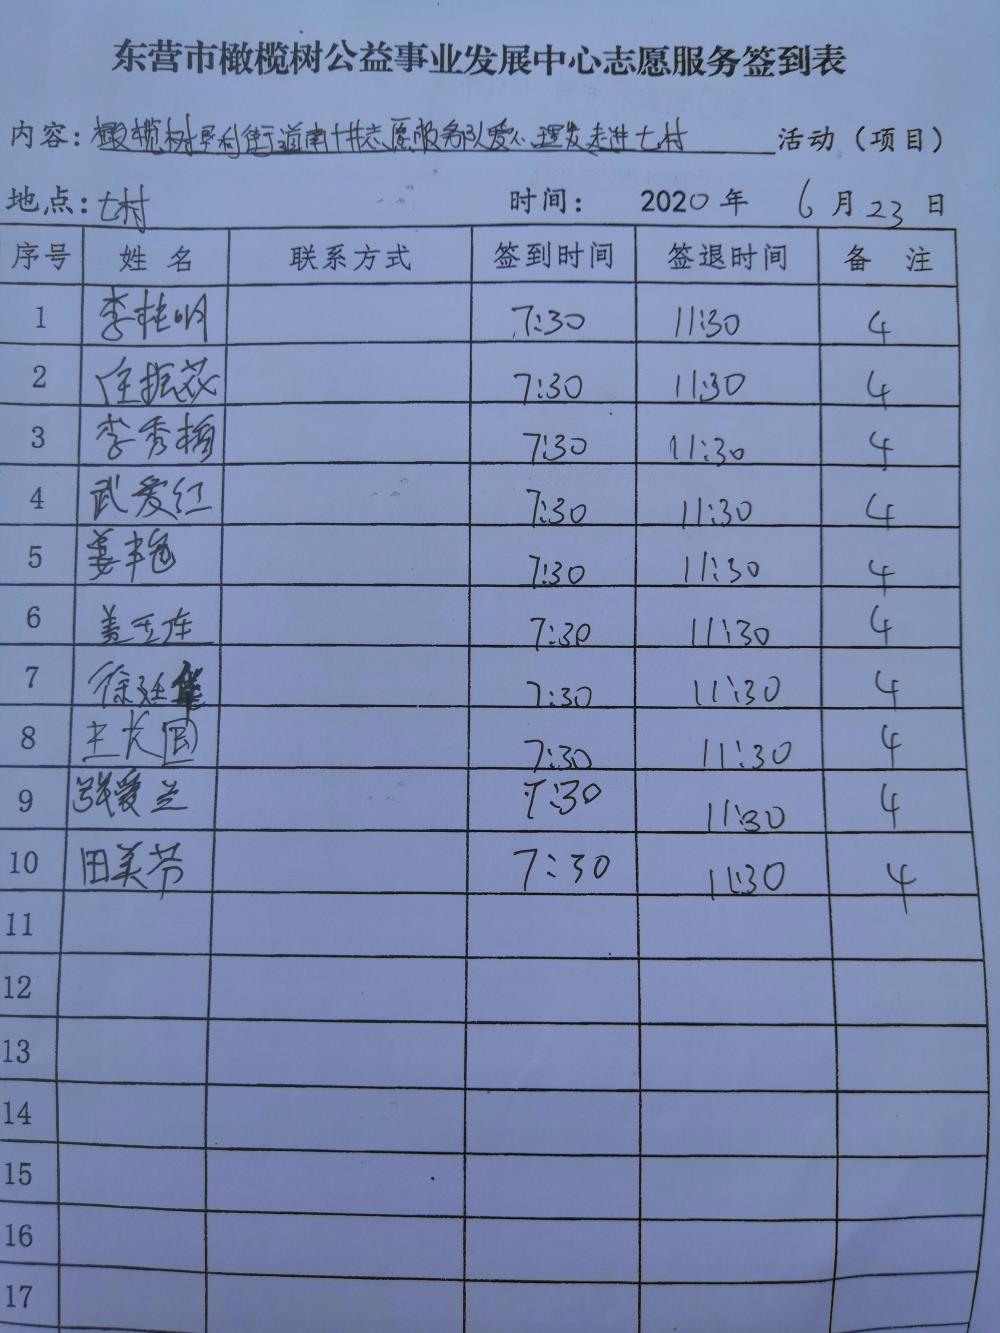 东营市橄榄树公益事业发展中心志愿服务签到表
内容：橄榄树胜利街道南十井志愿服务队爱心理发走进七村 活动（项目）
地点：七村 时间： 2020年 6月23日
序号 姓名 联系方式 签到时间 签退时间 备注
1 李桂明 7:30 11:30 4
2 任振花 7:30 11:30 4
3 李秀梅 7:30 11:30 4
4 武爱红 7:30 11:30 4
5 姜丰艳 7:30 11:30 4
6 盖玉库 7:30 11:30 4
7 徐廷华 7:30 11:30 4
8 王长国 7:30 11:30 4
9 张爱兰 7:30 11:30 4
10 田美芬 7:30 11:30 4
11
12
13
14
15
16
17